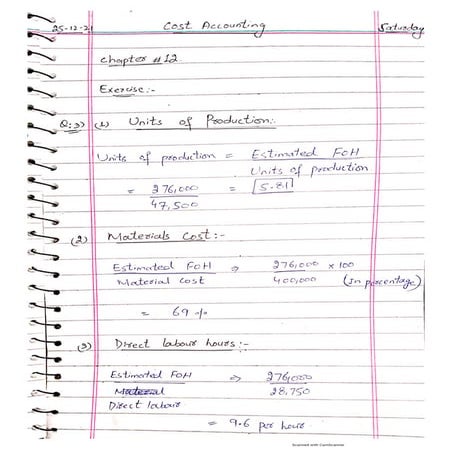 25-12-21 Cost Accounting Saturday
Chapter # 12
Exercise:-
Q:3) (1) Units of Production:-
Units of production = Estimated FOH / Units of production
= 276,000 / 47,500 = 5.81
(2) Materials Cost:-
Estimated FOH / Material Cost ⇒ 276,000 / 400,000 × 100 (In percentage)
= 69 %
(3) Direct labour hours:-
Estimated FOH / Direct labour ⇒ 276,000 / 28,750
= 9.6 per hour
Scanned with CamScanner